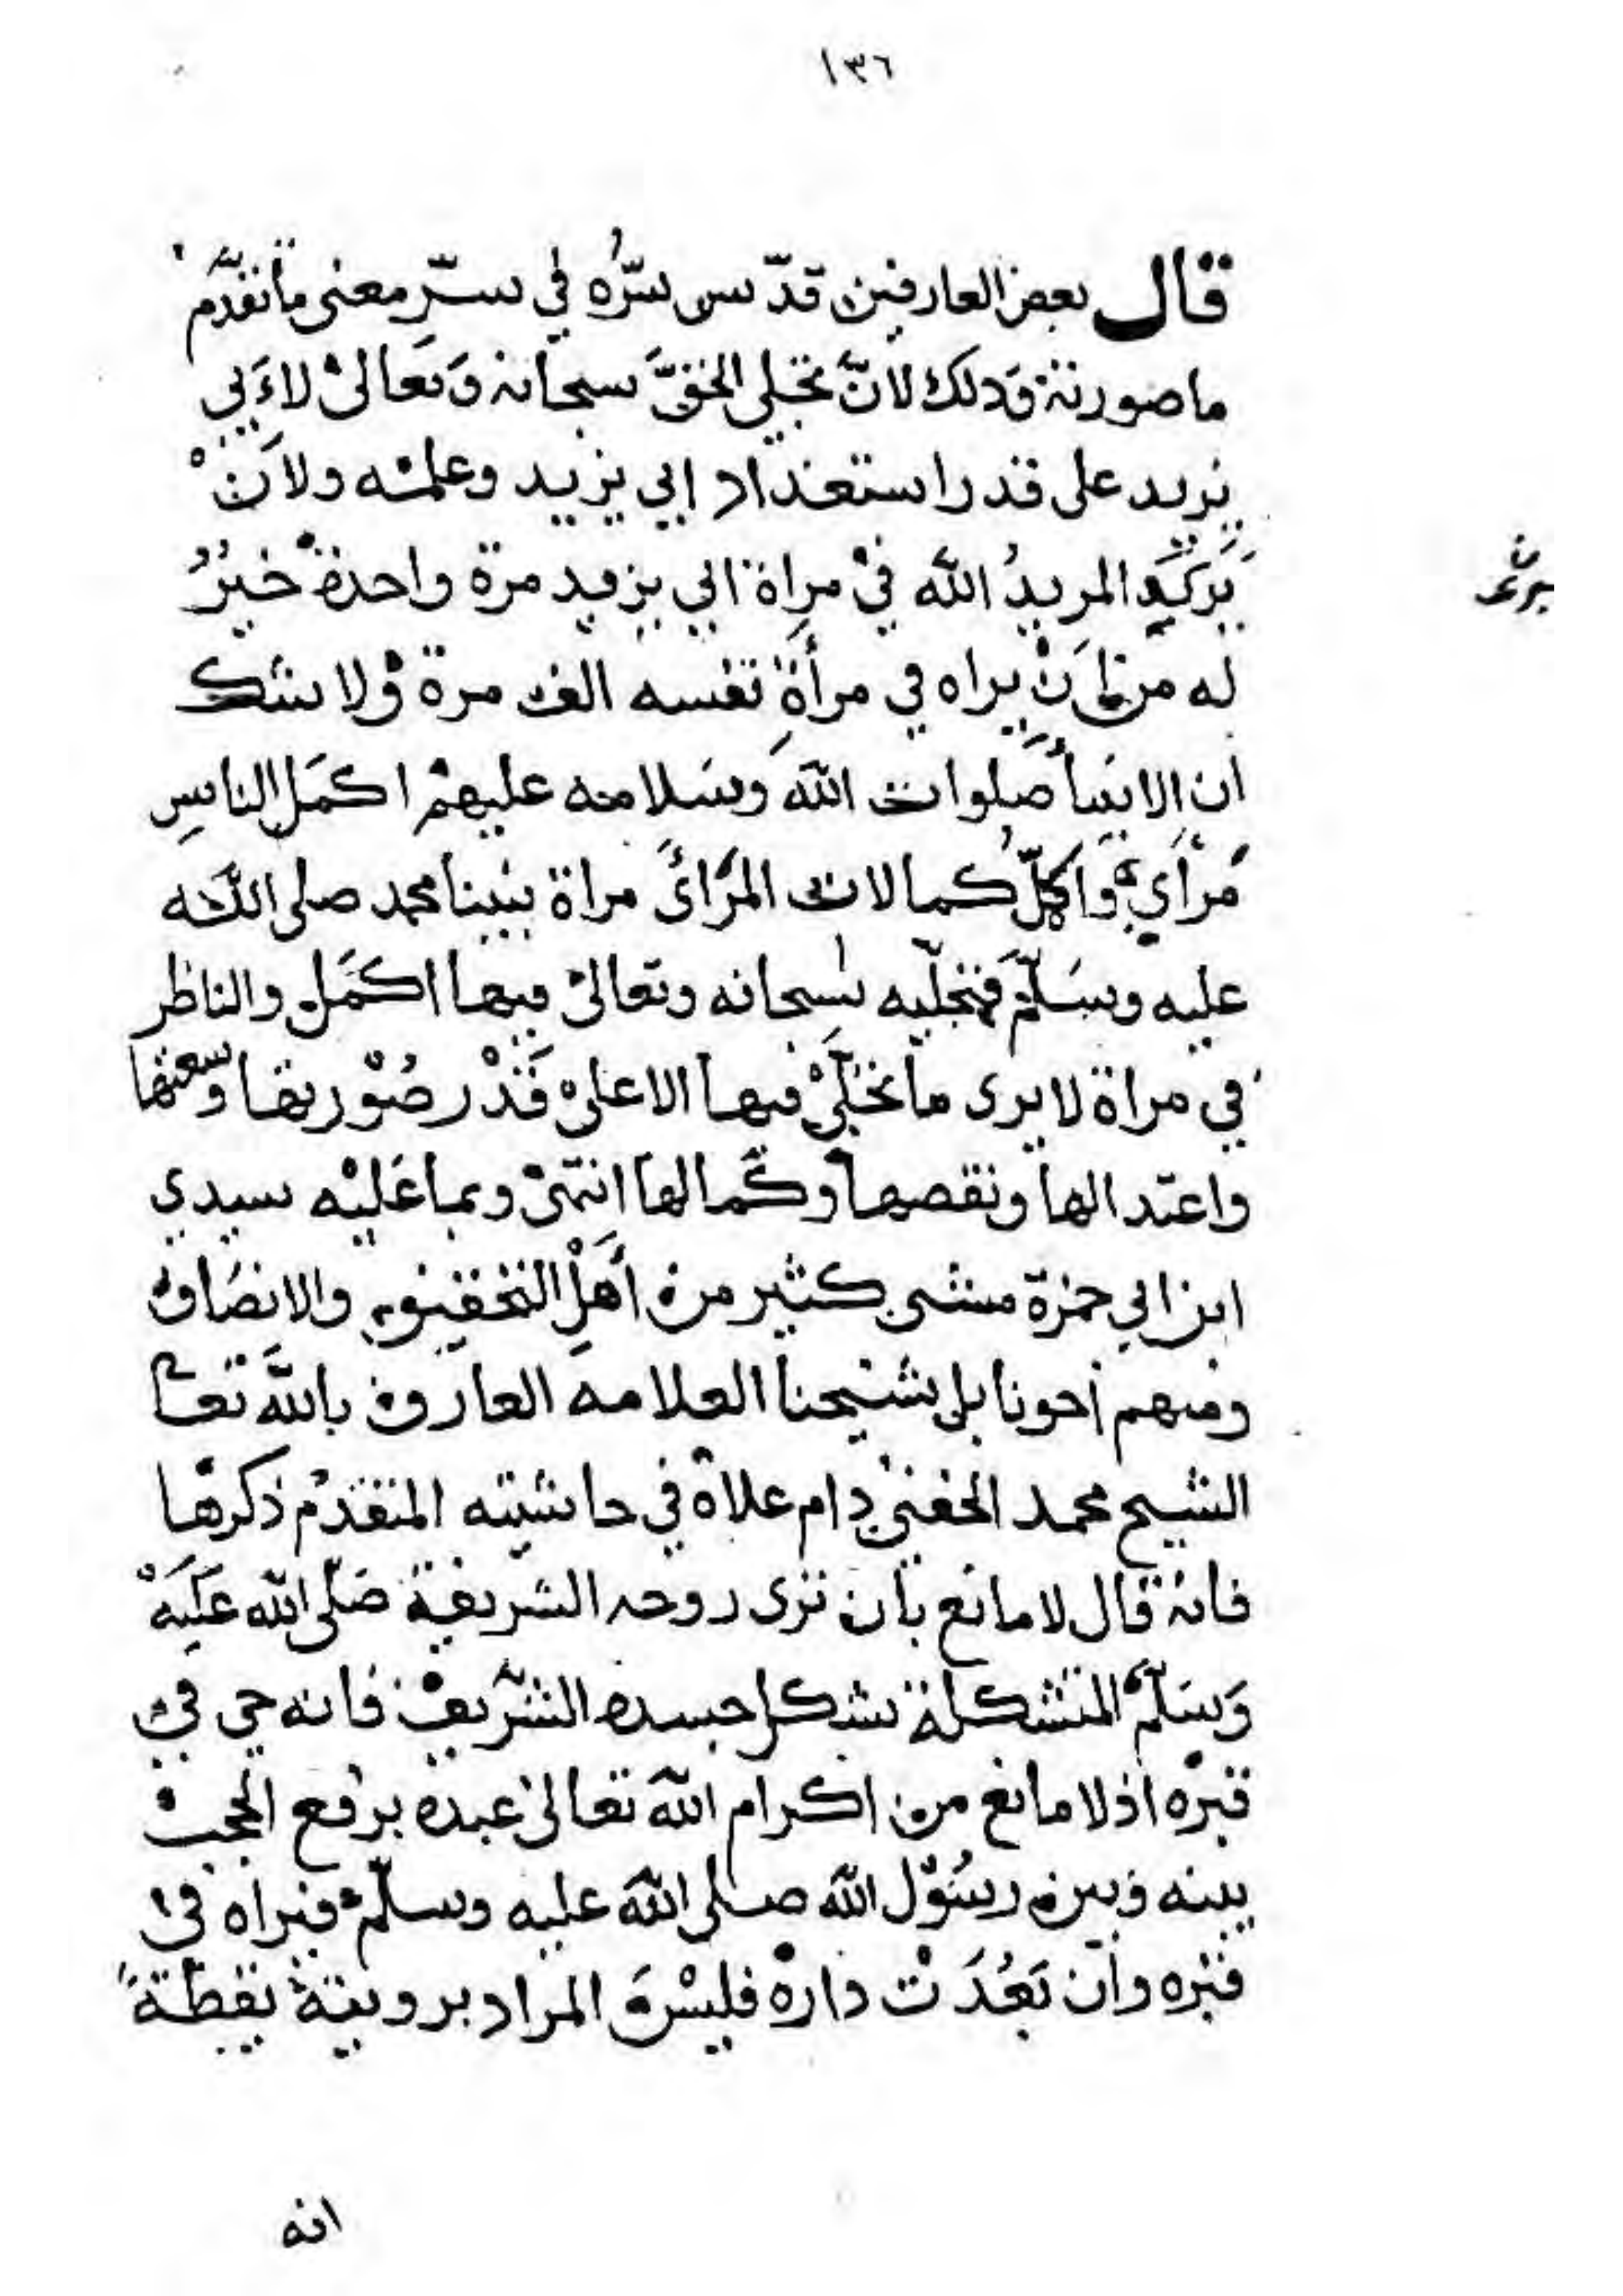 ١٣٦
قال بعض العارفين قدّس سرُّه في سرِّ معنى ما تقدَّم
ما صورته وذلك لانَّ تجلي الحقَّ سبحانه وَتعالىْ لاَبي
يزيد على قدر استعداد ابي يزيد وعلمه ولاَنْ
يرى
يَرَى المريدُ الله فيْ مراة ابي يزيد مرة واحدة خيرُ
له من اَنْ يراه في مرأةِ نفسه الف مرة وْلا شك
ان الانبيأ صَلوات اللهَ وسَلامه عليهمْ اكمَل الناسِ
مَرأي واكملّ كمالات المَرائىَ مراة نبينا محمد صلى اللهَ
عليه وسَلّمْ فتجلّيه سبحانه وتعالىْ فيها اكمَل والناظر
في مراة لا يرى ما تجلّىْ فيها الا علىْ قَدْر صُوْرتها وسعتها
واعتدالها ونقصها وكَمالها انتهىْ وبما عَليْه سيدي
ابن ابي حمزة مشى كثير من أهلِ التحقيق والانصَاف
ومنهم أخونا بل شيخنا العلامه العارف باللهَ تعا
الشيح محمد الحفنيْ دام علاهْ في حاشيته المتقدمْ ذكرهْا
فانهْ قال لا مانع بأن ترى روحه الشريفة صَلّى الله عَليَهْ
وَسَلّمْ المتشكلة بشكل جسده الشَريفْ فانه حي في
قبرْه اذ لا مانع من اكرام اللهَ تعالىْ عبده برفع الحجبْ
بينه وبين رسُوْل الله صلى اللهَ عليه وسلّمْ فيراه في
قبره وان بَعُدَتْ دارهْ فليسْ المراد برويتهْ يقظةً
انه